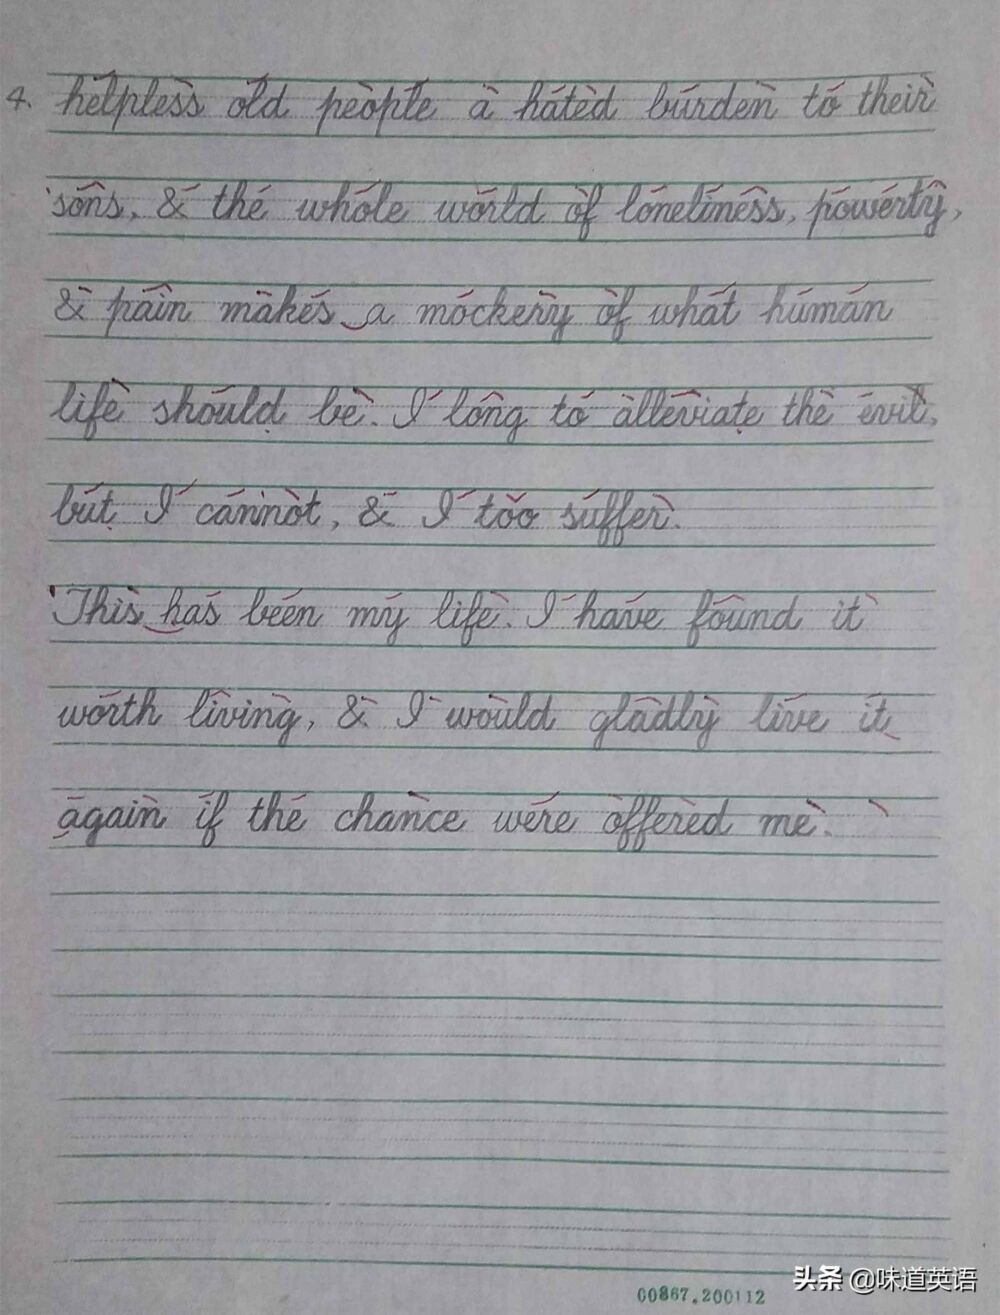 4. helpless old people a hated burden to their
sons, & the whole world of loneliness, powerty,
& pain makes a mockery of what human
life should be. I long to alleviate the evil,
but I cannot, & I too suffer.
This has been my life. I have found it
worth living, & I would gladly live it
again if the chance were offered me.
00867.200112
头条 @味道英语